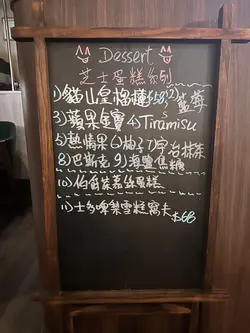 Dessert
芝士蛋糕
1)貓山皇榴槤$58 (2)藍莓
3)蘋果金寶 4)Tiramisu
5)熱情果 6)柚子 7)宇治抹茶
8)巴斯克 9)海鹽焦糖
10)伯爵茶慕絲蛋糕
11)士多啤梨雪糕窩夫 $68